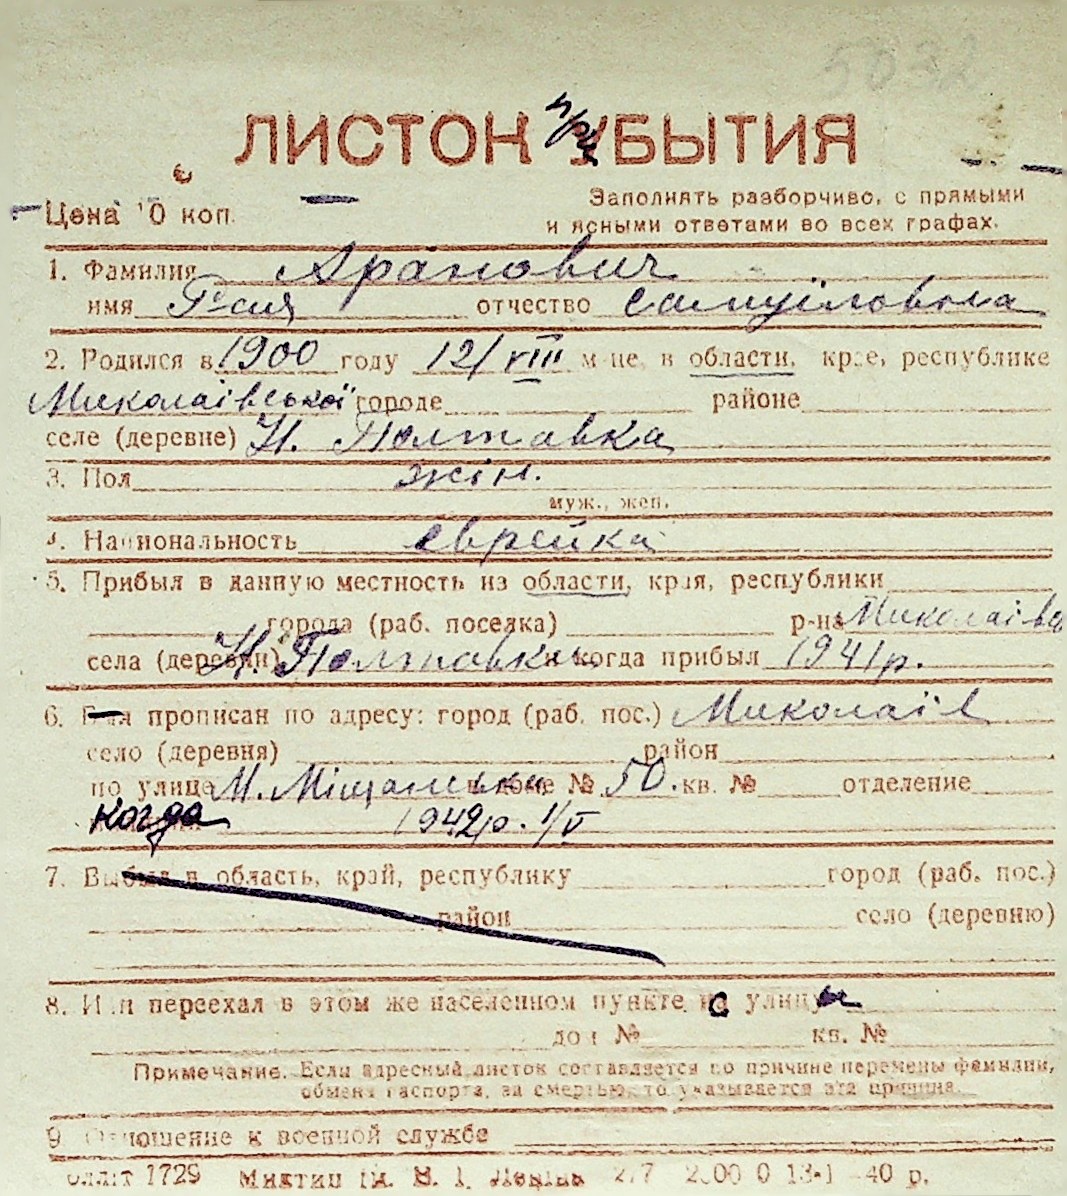 5032
ЛИСТОК при УБЫТИЯ
Цена 10 коп.
Заполнять разборчиво, с прямыми
и ясными ответами во всех графах.
1. Фамилия Арапович
имя отчество Самуіловна
2. Родился в 1900 году 12/VIII м-це, в области, крае, республике
Миколаївської городе районе
селе (деревне) Н. Полтавка
3. Пол жін.
муж., жен.
4. Национальность еврейка
5. Прибыл в данную местность из области, края, республики
города (раб. поселка) р-на Миколаїв
села (деревни) Н. Полтавка и когда прибыл 1941р.
6. Был прописан по адресу: город (раб. пос.) Миколаїв
село (деревня) район
по улице М. Міщанська в доме № 50. кв. № отделение
когда 1942р. 1/V
7. Выбыл в область, край, республику город (раб. пос.)
район село (деревню)
8. Или переехал в этом же населенном пункте с улицы
дом № кв. №
Примечание. Если адресный листок составляется по причине перемены фамилии,
обмена паспорта, за смертью, то указывается эта причина.
9. Отношение к военной службе
1729 В. І. Леніна 2/7 13-1 40 р.